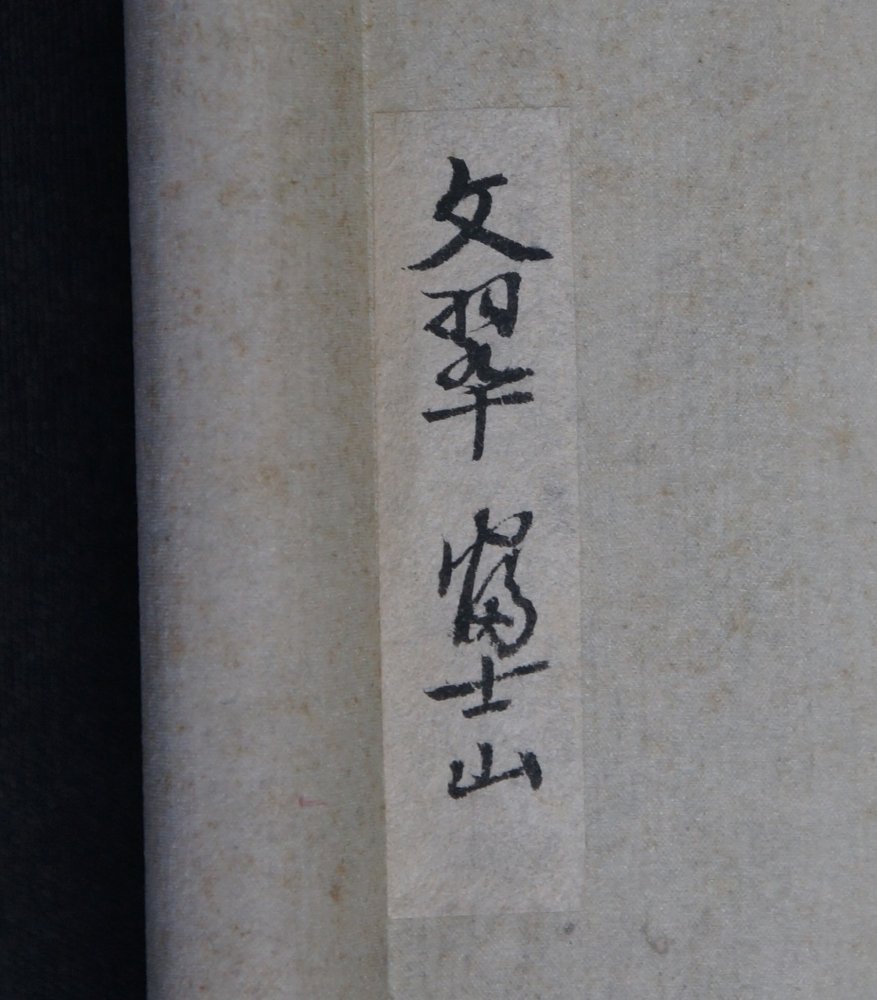 文翠 富士山